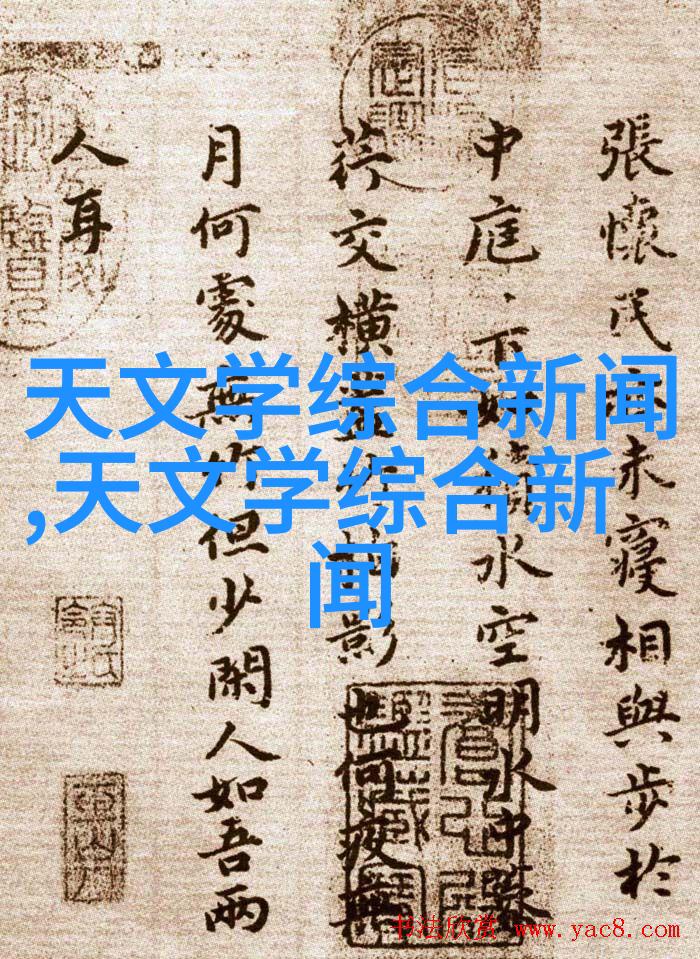 張懷民亦未寢相與步於
中庭、下如積水空明水中藻
荇交橫蓋竹柏影也何夜無
月何處無竹但少閑人如吾兩
人耳
天文学综合新闻
,天文学综合新
闻
书法欣赏 www.yac8.com